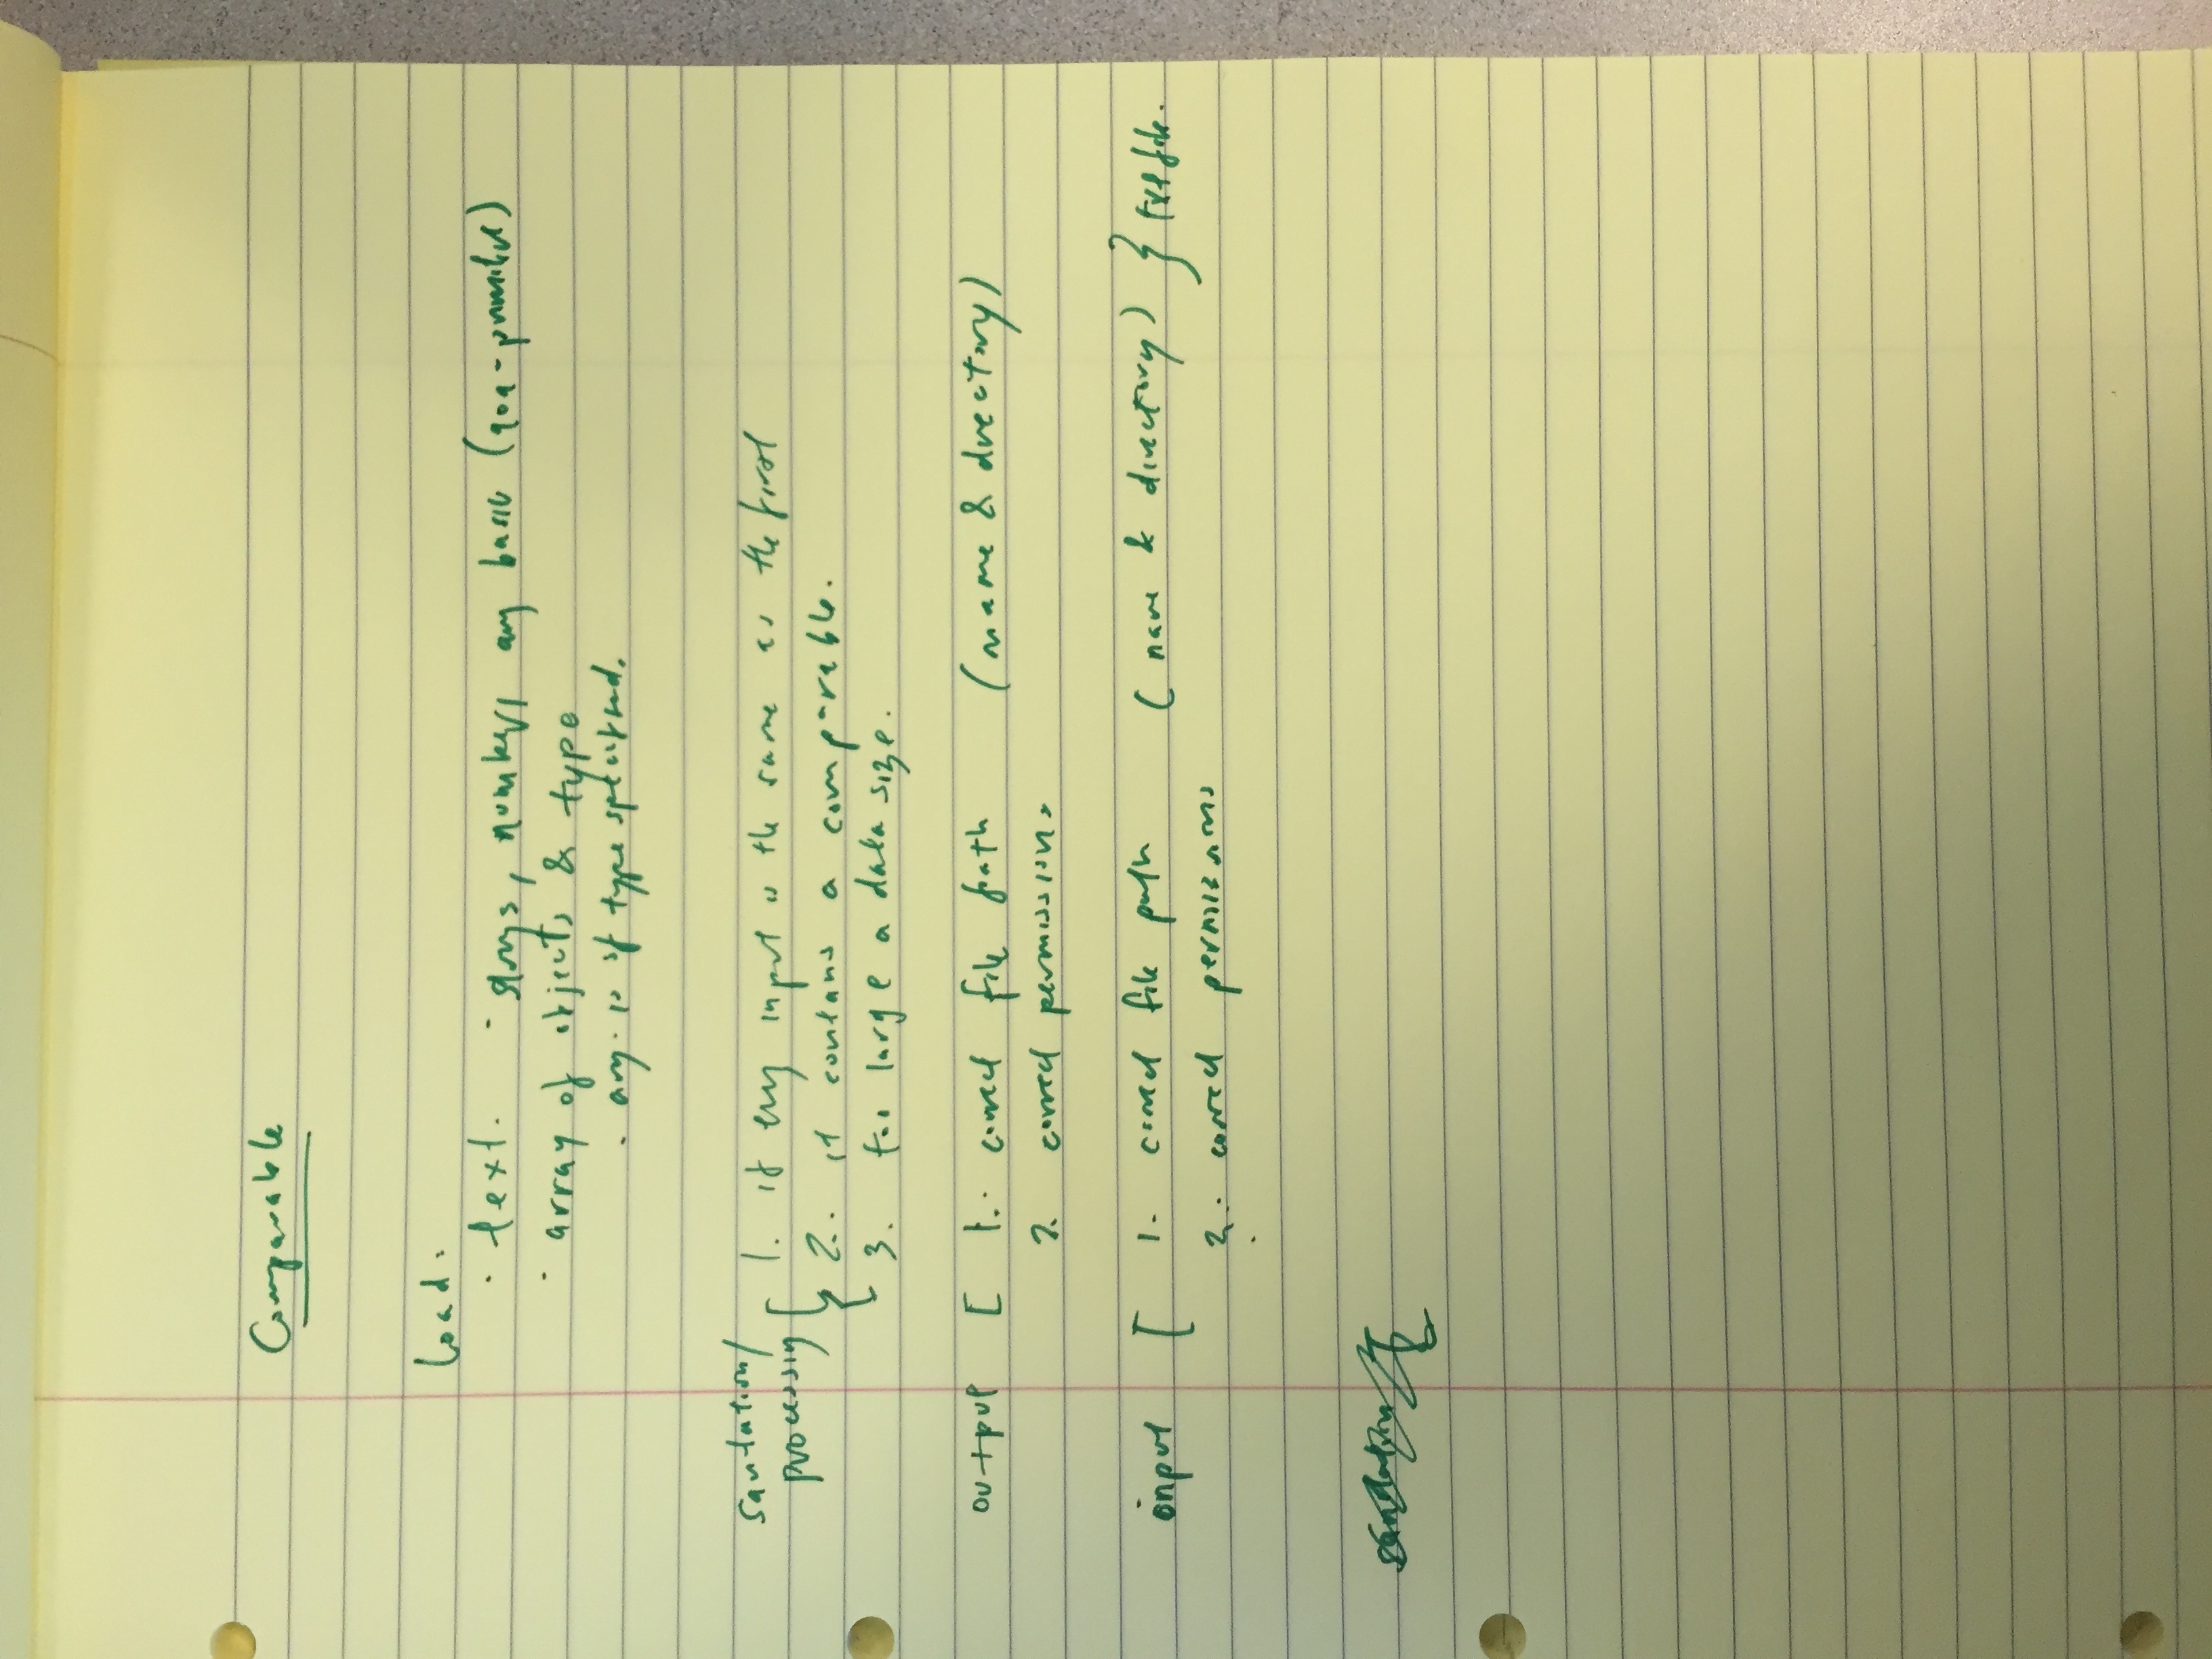 Comparable
Load:
· text. · strings, numbers, any basic
· array of objects & type
· any is of type specified.
santation/
processing
1. if every input is the same as the first
2. it contans a comparable.
3. too large a data size.
output [ 1. correct file path (name & directory)
2. correct permissions
input [ 1. correct file path (name & directory) } txt file.
2. correct permissions